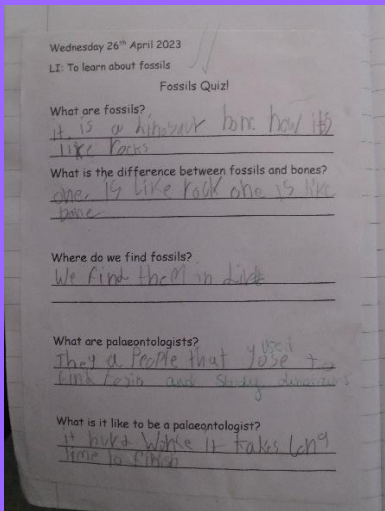 Wednesday 26th April 2023
LI: To learn about fossils
Fossils Quiz!
What are fossils?
it is a dinosaur bone how it's
like rocks
What is the difference between fossils and bones?
one is like rock one is like
bone
Where do we find fossils?
We find them in
What are palaeontologists?
They a People that yose used to
find and study dinosaurs
What is it like to be a palaeontologist?
it hurd it takes long
time to finish